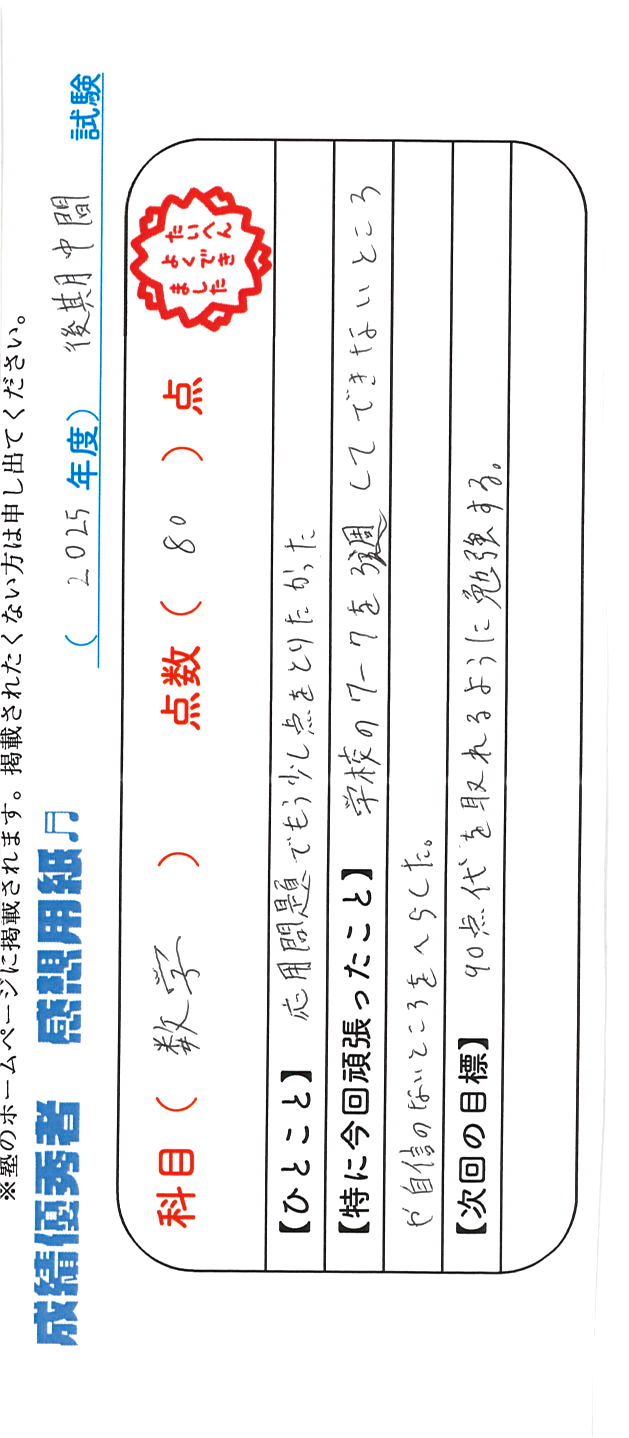 ※塾のホームページに掲載されます。掲載されたくない方は申し出てください。
成績優秀者 感想用紙♬ ( 2025 年度) 後期中間 試験
科目 ( 数学 ) 点数 ( 80 ) 点
たいへん
よくでき
ました
【ひとこと】 応用問題でもう少し点をとりたかった
【特に今回頑張ったこと】 学校のワークを3週してできないところ
や自信のないところをへらした。
【次回の目標】 90点代を取れるように勉強する。